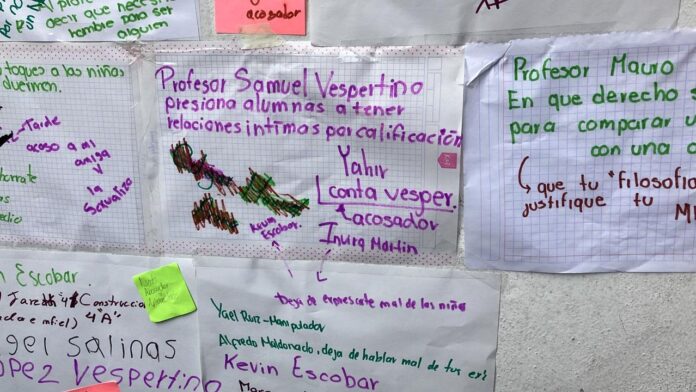 decir que necesit
hombre para ser
alguien
acosador
toques a las niñas
duermen.
Tarde
acoso a mi
amiga
y
la
Sexualizo
Profesor Samuel Vespertino
presiona alumnas a tener
relaciones intimas por calificación
Yahir
conta vesper.
acosador
Kevin
Escobar.
Profesor Mauro
En que derecho
para comparar u
con una
que tu "filosofia
justifique tu
Deja de expresarte mal de las niñas
n Escobar.
4 Construccio
4"A"
gel Salinas
opez Vespertino
Yael Ruiz-Manipulador
Alfredo Maldonado, deja de hablar mal de tus ex's
Kevin Escobar